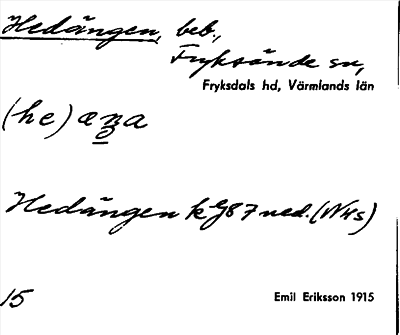 Hedängen, beb.,
Fryksände sn,
Fryksdals hd, Värmlands län
(he) æŋa
Hedängen k 87 ned. (NHs)
15
Emil Eriksson 1915